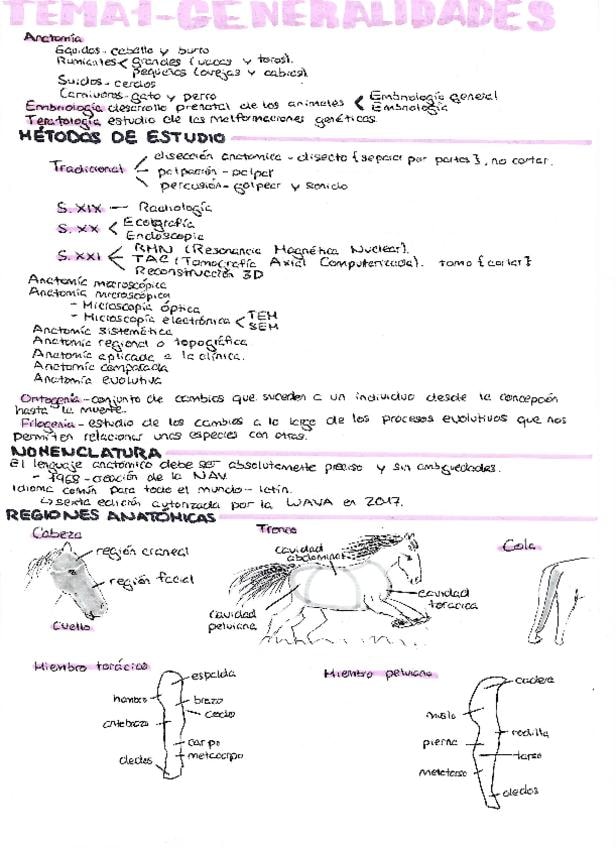 TEMA 1 - GENERALIDADES
Anatomía
Équidos - caballo y burro
Rumiantes < grandes (vacas y toros).
pequeños (ovejas y cabras).
Suidos - cerdos
Carnívoros - gato y perro
Embriología desarrollo prenatal de los animales < Embriología general
Embriología
Teratología estudio de las malformaciones genéticas.
MÉTODOS DE ESTUDIO
Tradicional
disección anatómica - disecto {separar por partes}, no cortar.
palpación - palpar
percusión - golpear y sonido
S. XIX — Radiología
S. XX < Ecografía
Endoscopia
S. XXI
RMN (Resonancia Magnética Nuclear).
TAC (Tomografía Axial Computerizada). tomo {cortar}
Reconstrucción 3D
Anatomía macroscópica
Anatomía microscópica
- Microscopía óptica
- Microscopía electrónica < TEM
SEM
Anatomía sistemática
Anatomía regional o topográfica
Anatomía aplicada a la clínica.
Anatomía comparada
Anatomía evolutiva
Ontogenia - conjunto de cambios que suceden a un individuo desde la concepción
hasta la muerte.
Filogenia - estudio de los cambios a lo largo de los procesos evolutivos que nos
permiten relacionar unas especies con otras.
NOMENCLATURA
El lenguaje anatómico debe ser absolutamente preciso y sin ambigüedades.
- 1968 - creación de la NAV
Idioma común para todo el mundo - latín.
↳ sexta edición autorizada por la WAVA en 2017.
REGIONES ANATÓMICAS
Cabeza
región craneal
región facial
Cuello
Tronco
cavidad
abdominal
cavidad
pelviana
cavidad
torácica
Cola
Miembro torácico
espalda
hombro
brazo
codo
antebrazo
carpo
metacarpo
dedos
Miembro pelviano
cadera
muslo
rodilla
pierna
tarso
metatarso
dedos